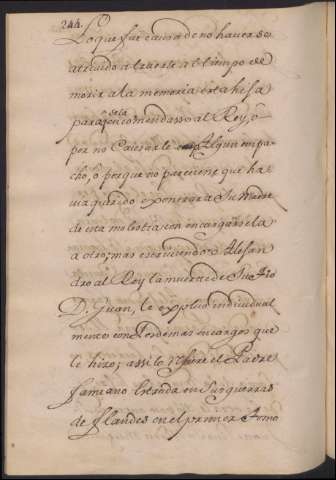 244.
Lo que fue causa de no haverse
atrevido a traerse al tiempo de
morir a la memoria esta hija
para q̃ se la encomendasse al Rey, o
por no causarle algun empa
cho, o porque no pareciese que ha
via querido exonerar a Su Madre
de esta molestia con encargarsela
a otro; mas escriviendo Alexan
dro al Rey la muerte de Su tio
D. Juan, le explico individual
mente con los demas encargos que
le hizo; assi lo refiere el Padre
Famiano Estrada en Sus guerras
de Flandes en el primer tomo